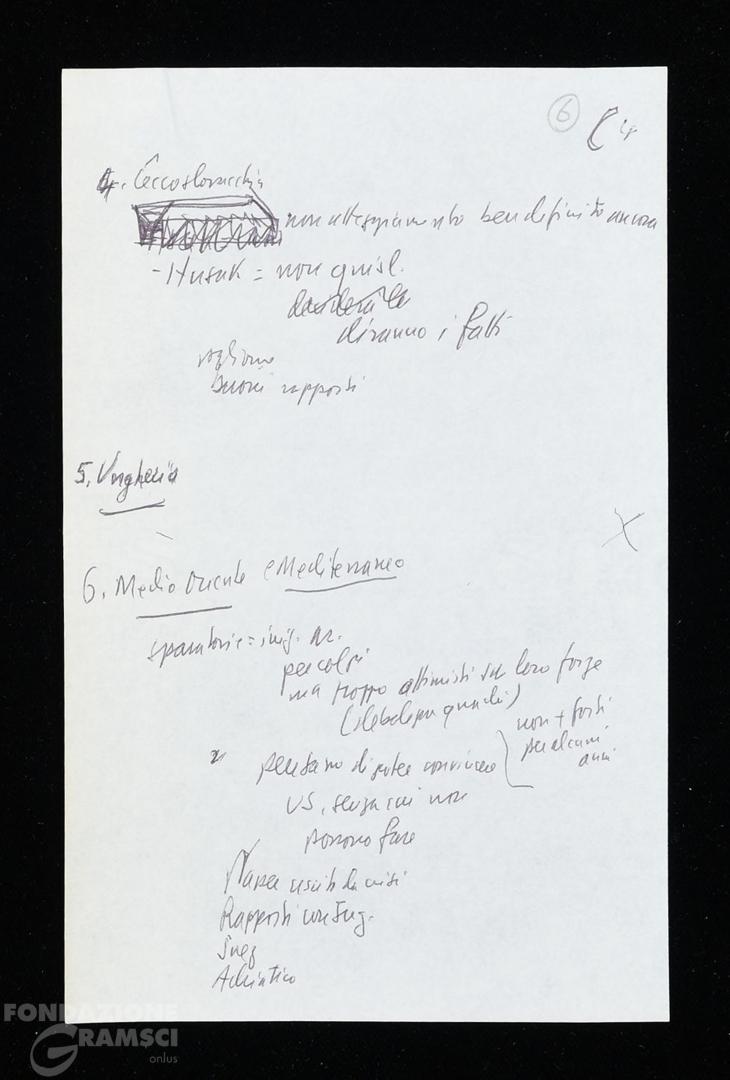 6
4. Cecoslovacchia
non atteggiamento ben definito ancora
- Husak = non quisl.
diranno i fatti
vogliono
buoni rapporti
5. Ungheria
6. Medio Oriente e Mediterraneo
pericolosi
ma troppo ottimisti su loro forze
(debolezza quadri)
pensano di poter convincere
non + forti
per alcuni
anni
US, senza cui non
possono fare
Nasser uscito da crisi
Rapporti con Jug.
Suez
Adriatico
FONDAZIONE
GRAMSCI
onlus